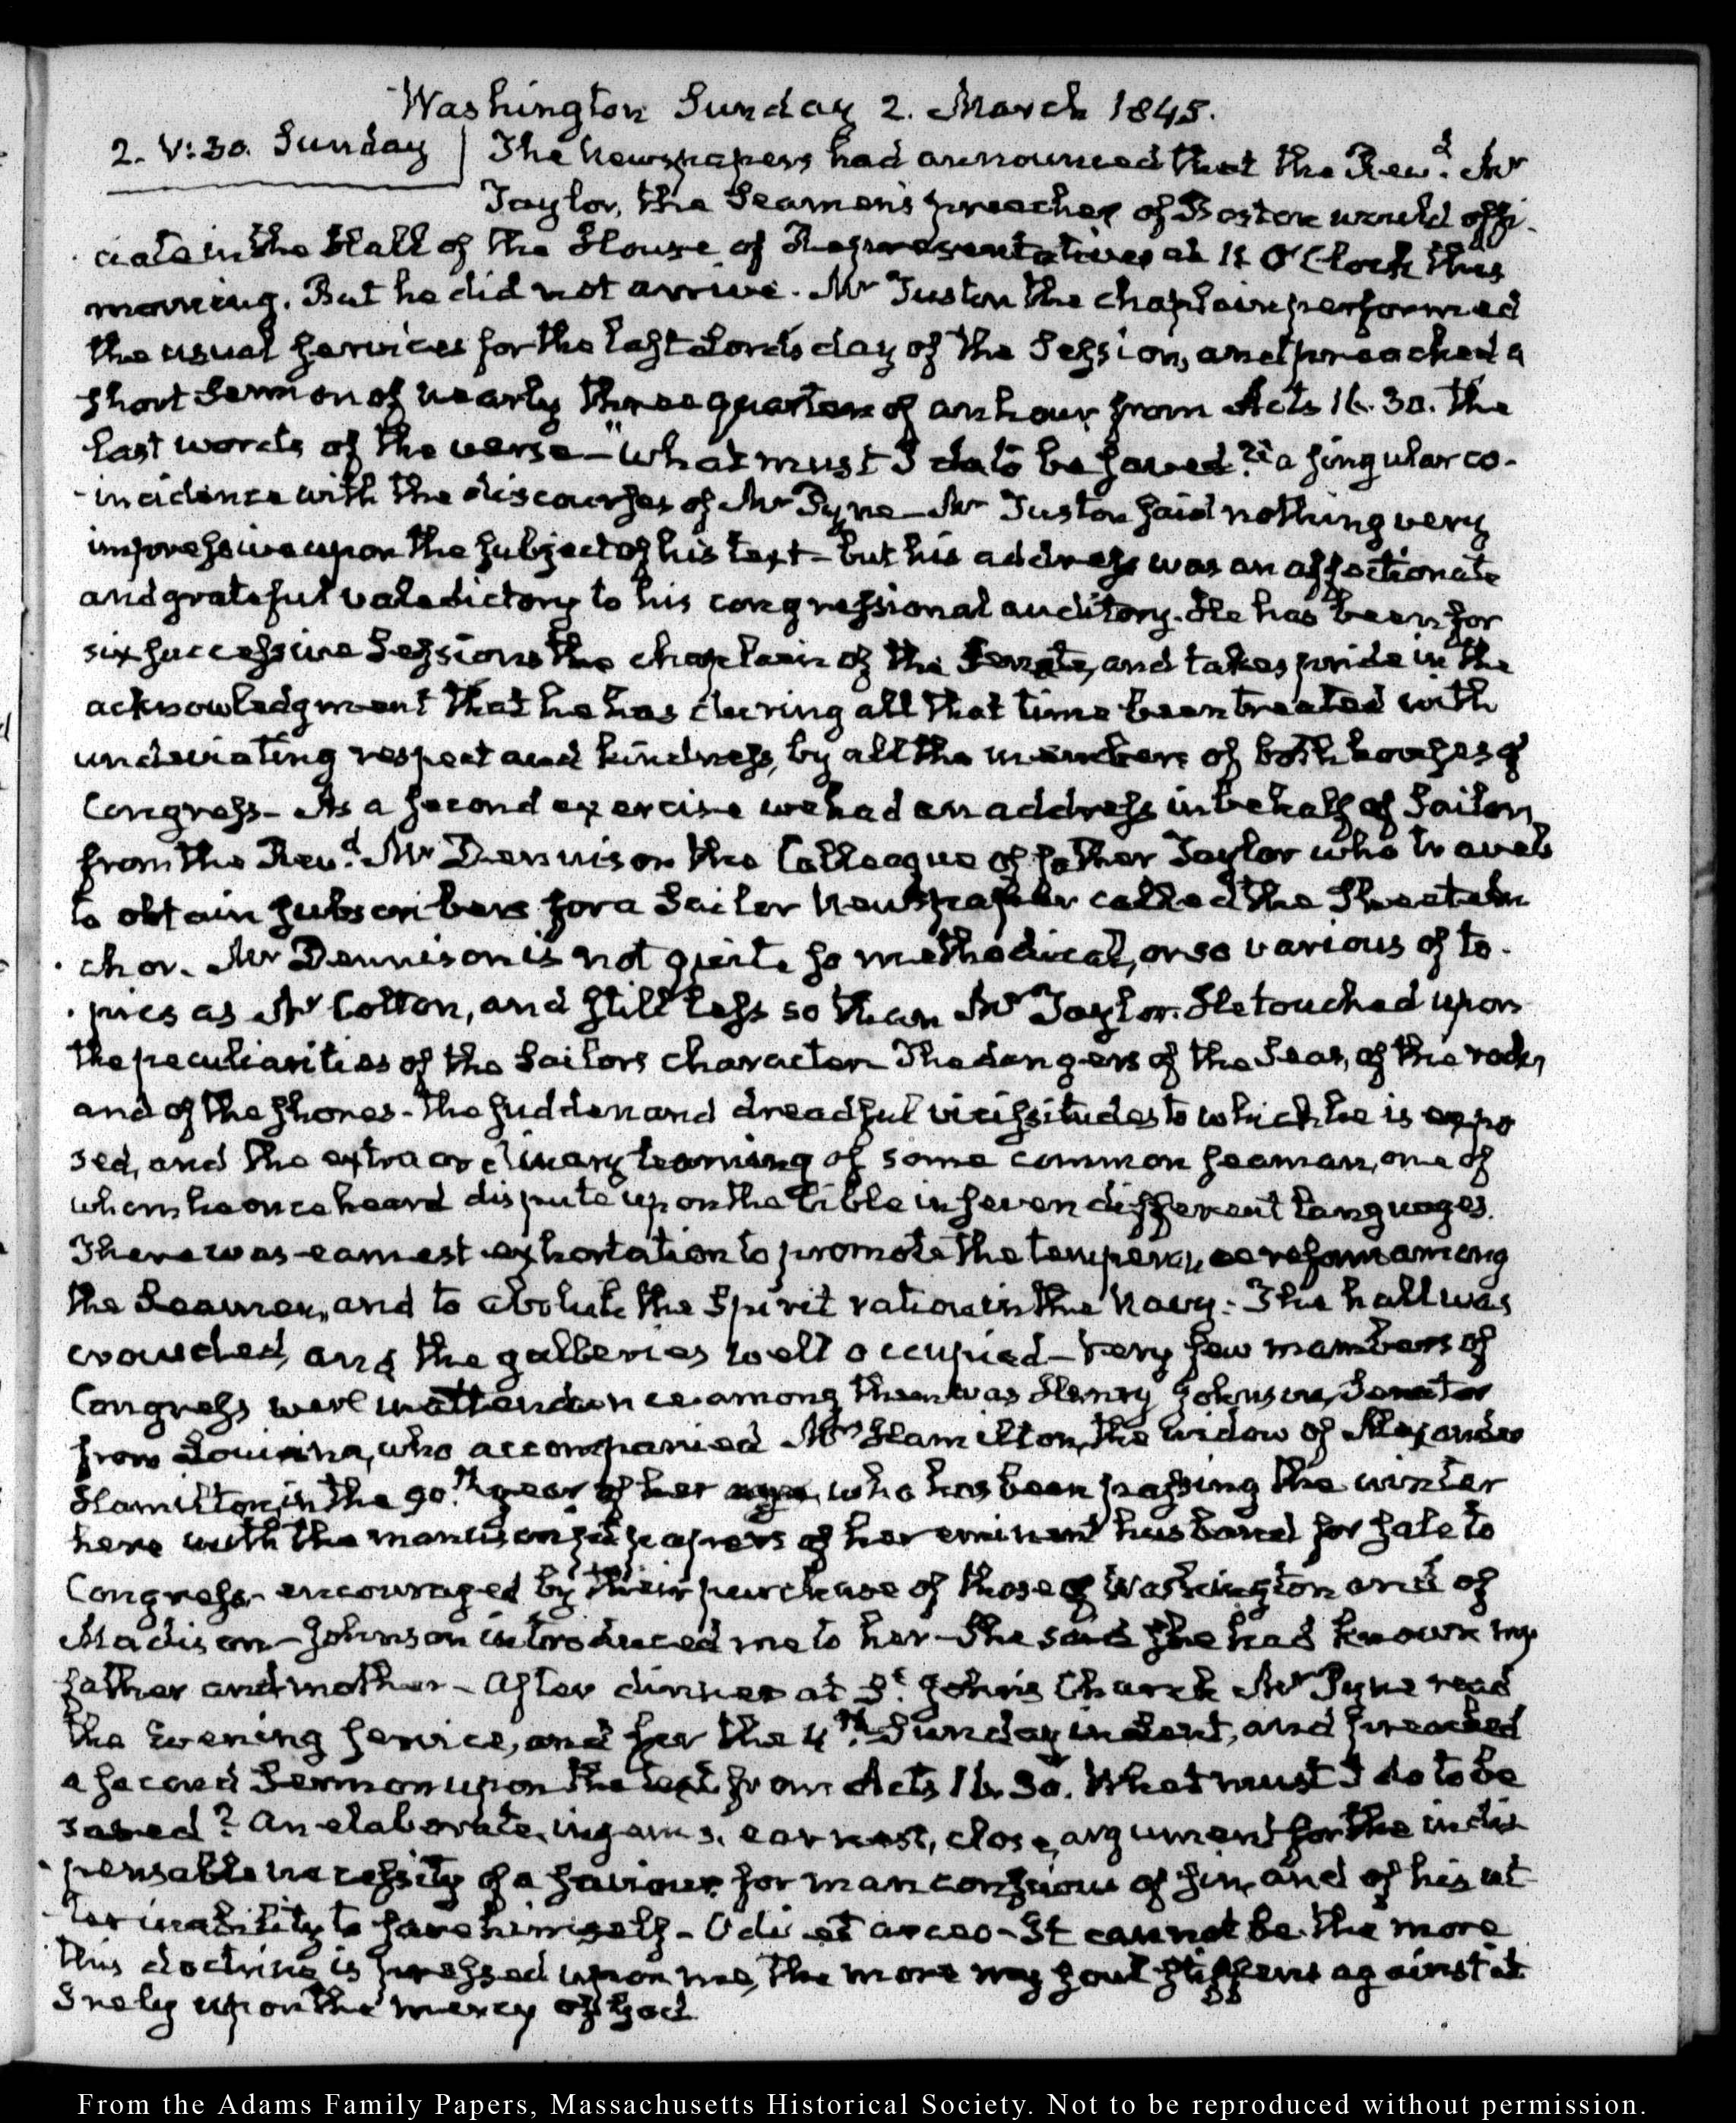 Washington Sunday 2. March 1845.
2. V:30. Sunday
The Newspapers had announced that the Revd. Mr
Taylor, the Seamen's preacher of Boston would offi-
ciate in the Hall of the House of Representatives at 11 O'Clock this
morning. But he did not arrive. Mr Tuston the chaplain performed
the usual services for the last Lord's day of the Session, and preached a
short Sermon of nearly three quarters of an hour from Acts 16. 30. The
last words of the verse—"what must I do to be saved?" a singular co-
incidence with the discourses of Mr Pyne—Mr Tuston said nothing very
impressive upon the subject of his text—but his address was an affectionate
and grateful valedictory to his congressional auditory. He has been for
six successive Sessions the chaplain of the Senate, and takes pride in the
acknowledgment that he has during all that time been treated with
undeviating respect and kindness, by all the members of both houses of
Congress—As a second exercise we had an address in behalf of Sailors,
from the Revd. Mr Dennison the Colleague of father Taylor who travels
to obtain subscribers for a Sailor Newspaper called the Sheet an
chor. Mr Dennison is not quite so methodical, or so various of to-
pics as Mr Colton, and still less so than Mr Taylor. He touched upon
the peculiarities of the Sailors character The dangers of the Seas, of the rocks,
and of the shores—the sudden and dreadful vicissitudes to which he is expo
sed, and the extraordinary learning of some common seaman, one of
whom he once heard dispute upon the bible in seven different languages.
There was earnest exhortation to promote the temperance reform among
the Seamen, and to abolish the Spirit ration in the Navy. The hall was
crowded, and the galleries well occupied—Very few members of
Congress were in attendance among them was Henry Johnson, Senator
from Louisiana, who accompanied Mrs Hamilton, the widow of Alexander
Hamilton, in the 90th. year of her age, who has been passing the winter
here with the manuscript papers of her eminent husband for sale to
Congress—encouraged by their purchase of those of Washington and of
Madison—Johnson introduced me to her—She said she had known my
father and mother—After dinner at St. John's Church Mr Pyne read
the Evening service, and for the 4th. Sunday in Lent, and preached
a second Sermon upon the text from Acts 16. 30. What must I do to be
saved? An elaborate, ingenious, earnest, close, argument for the indis-
pensable necessity of a saviour for man conscious of sin, and of his ut-
ter inability to save himself—Odi et arceo—It cannot be. The more
this doctrine is pressed upon me, the more my soul stiffens against it
I rely upon the mercy of God
From the Adams Family Papers, Massachusetts Historical Society. Not to be reproduced without permission.